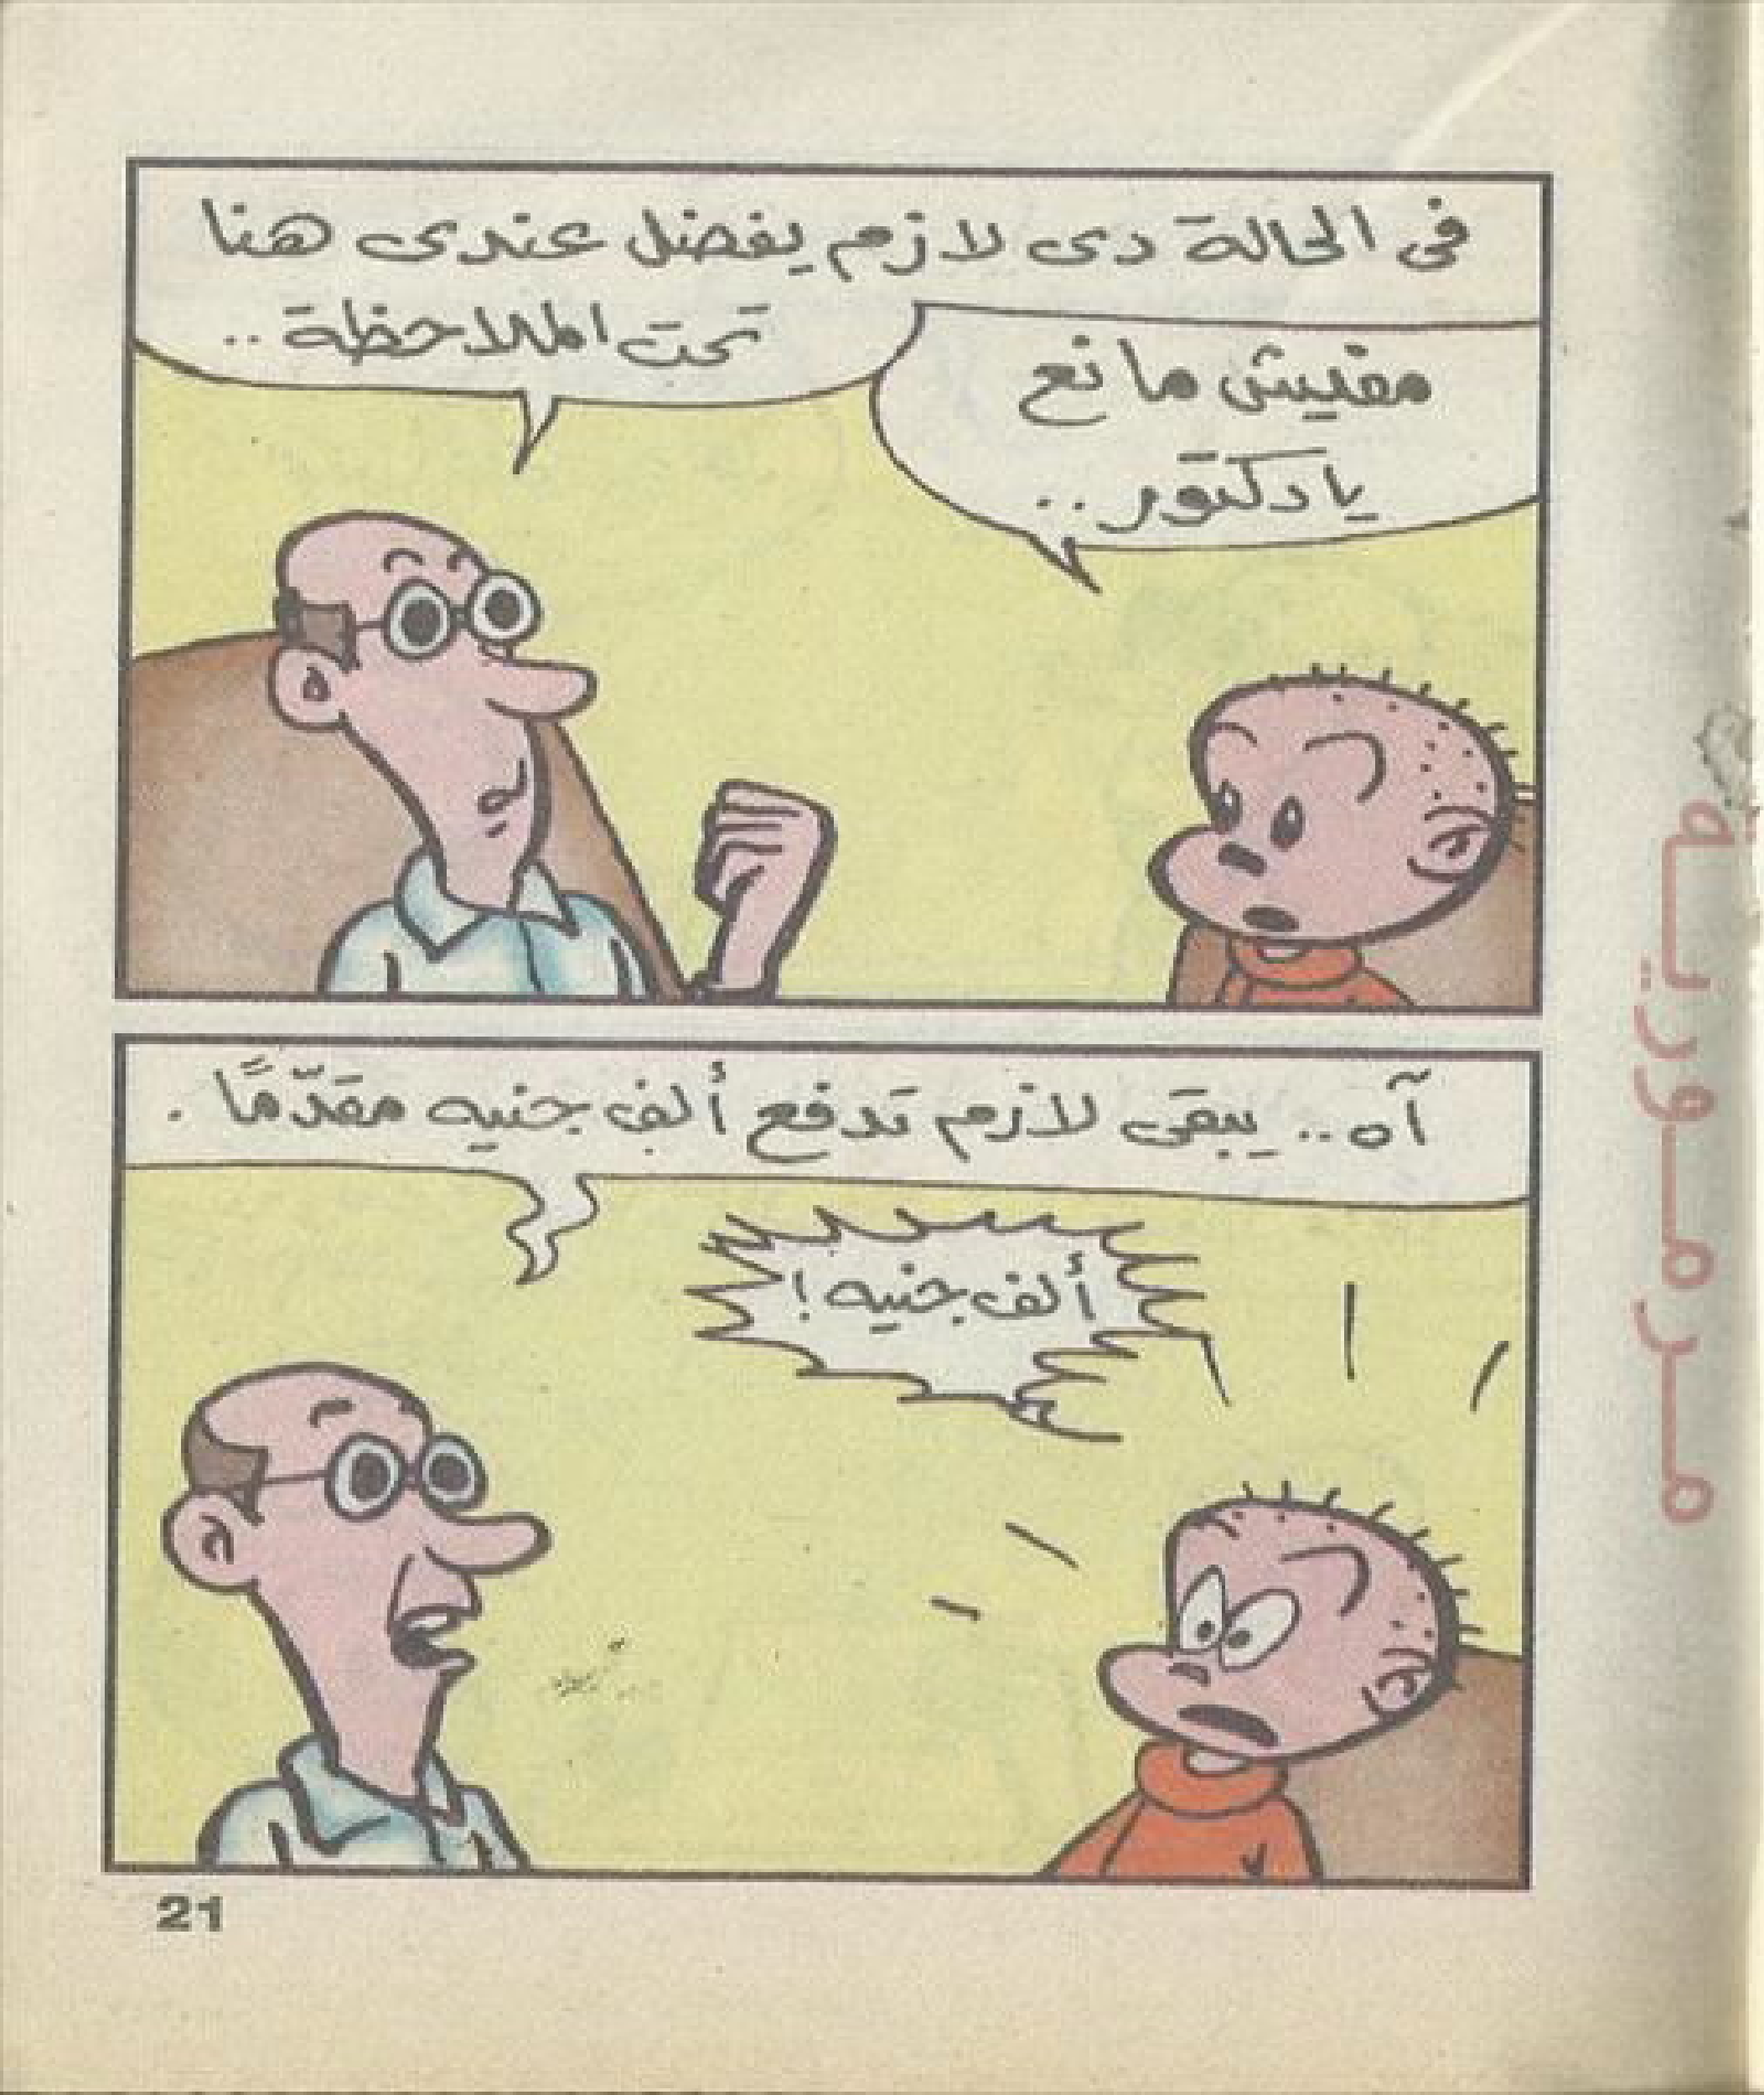 فى الحالة دى لازم يفضل عندى هنا
تحت الملاحظة ..
مفيش مانع
يا دكتور ..
آه .. يبقى لازم تدفع ألف جنيه مقدّمًا .
ألف جنيه !
21
مرمورية